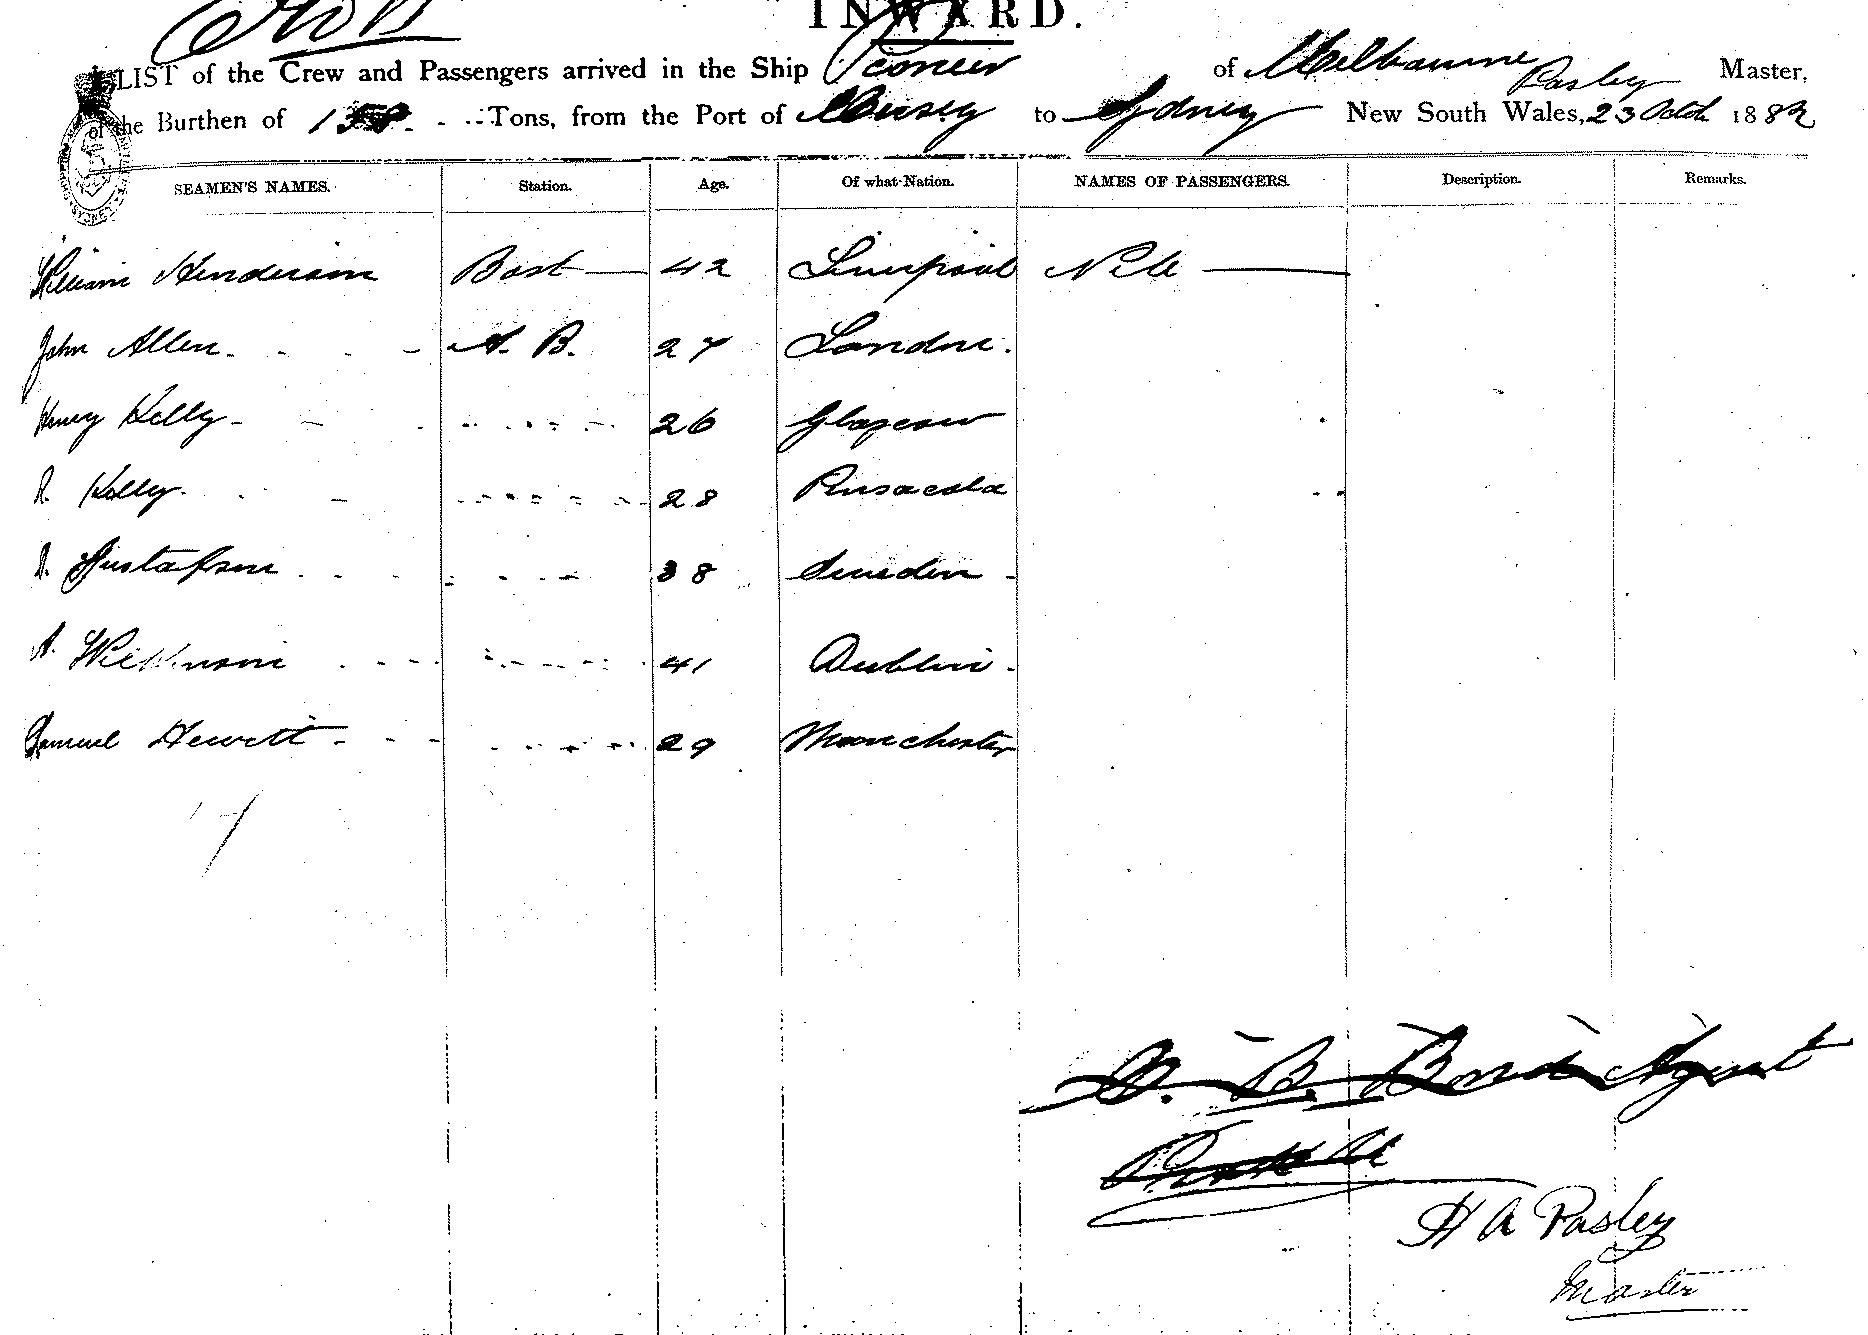 INWARD.
LIST of the Crew and Passengers arrived in the Ship Pioneer of Melbourne Pasley Master,
of the Burthen of Tons, from the Port of Mersey to Sydney New South Wales, 23 Octb 1882
SEAMEN'S NAMES. Station. Age. Of what Nation. NAMES OF PASSENGERS. Description. Remarks.
William Henderson 42 Liverpool
John Allen A. B. 27 London.
Henry Kelly 26 Glasgow
Kelly 28
Gustafson 38 Sweden
A. Wilkinson 41 Dublin
Samuel Hewett 29 Manchester
7
B. Agent
H A Pasley
Master